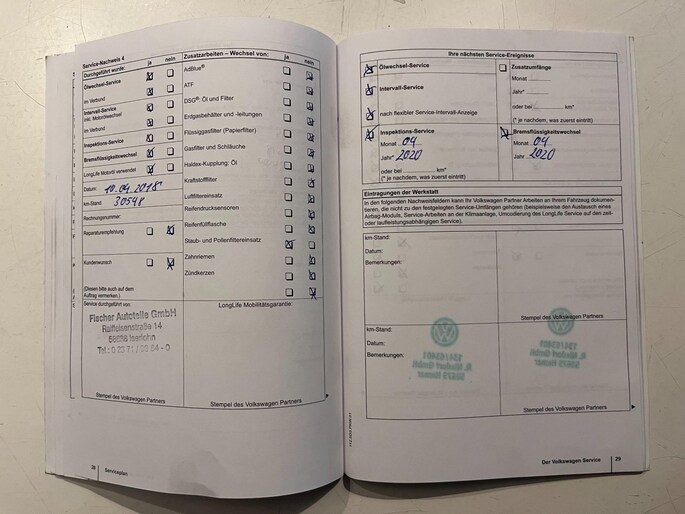 Service-Nachweis 4
Durchgeführt wurde: ja nein
Ölwechsel-Service
im Verbund
Intervall-Service
inkl. Motorölwechsel
im Verbund
Inspektions-Service
Bremsflüssigkeitswechsel
LongLife Motoröl verwendet
Datum: 10.04.2018
km-Stand: 30548
Rechnungsnummer:
Reparaturempfehlung
Kundenwunsch
(Diesen bitte auch auf dem
Auftrag vermerken.)
Service durchgeführt von:
Fischer Autoteile GmbH
14
Iserlohn
Stempel des Volkswagen Partners
Zusatzarbeiten – Wechsel von: ja nein
AdBlue®
ATF
DSG®: Öl und Filter
Erdgasbehälter und -leitungen
Flüssiggasfilter (Papierfilter)
Gasfilter und Schläuche
Haldex-Kupplung: Öl
Kraftstofffilter
Luftfiltereinsatz
Reifendrucksensoren
Reifenfüllflasche
Staub- und Pollenfiltereinsatz
Zahnriemen
Zündkerzen
LongLife Mobilitätsgarantie:
Stempel des Volkswagen Partners
28 Serviceplan
Ihre nächsten Service-Ereignisse
Ölwechsel-Service
Intervall-Service
nach flexibler Service-Intervall-Anzeige
Zusatzumfänge
Monat
Jahr*
oder bei km*
(* je nachdem, was zuerst eintritt)
Inspektions-Service
Monat 04
Jahr* 2020
oder bei km*
(* je nachdem, was zuerst eintritt)
Bremsflüssigkeitswechsel
Monat 04
Jahr 2020
Eintragungen der Werkstatt
In den folgenden Nachweisfeldern kann Ihr Volkswagen Partner Arbeiten an Ihrem Fahrzeug dokumen-
tieren, die nicht zu den festgelegten Service-Umfängen gehören (beispielsweise den Austausch eines
Airbag-Moduls, Service-Arbeiten an der Klimaanlage, Umcodierung des LongLife Service auf den zeit-
oder laufleistungsabhängigen Service).
km-Stand:
Datum:
Bemerkungen:
Stempel des Volkswagen Partners
km-Stand:
Datum:
Bemerkungen:
Stempel des Volkswagen Partners
Der Volkswagen Service 29